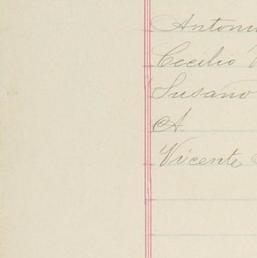 Antoni
Cecilio
Susano
A
Vicente